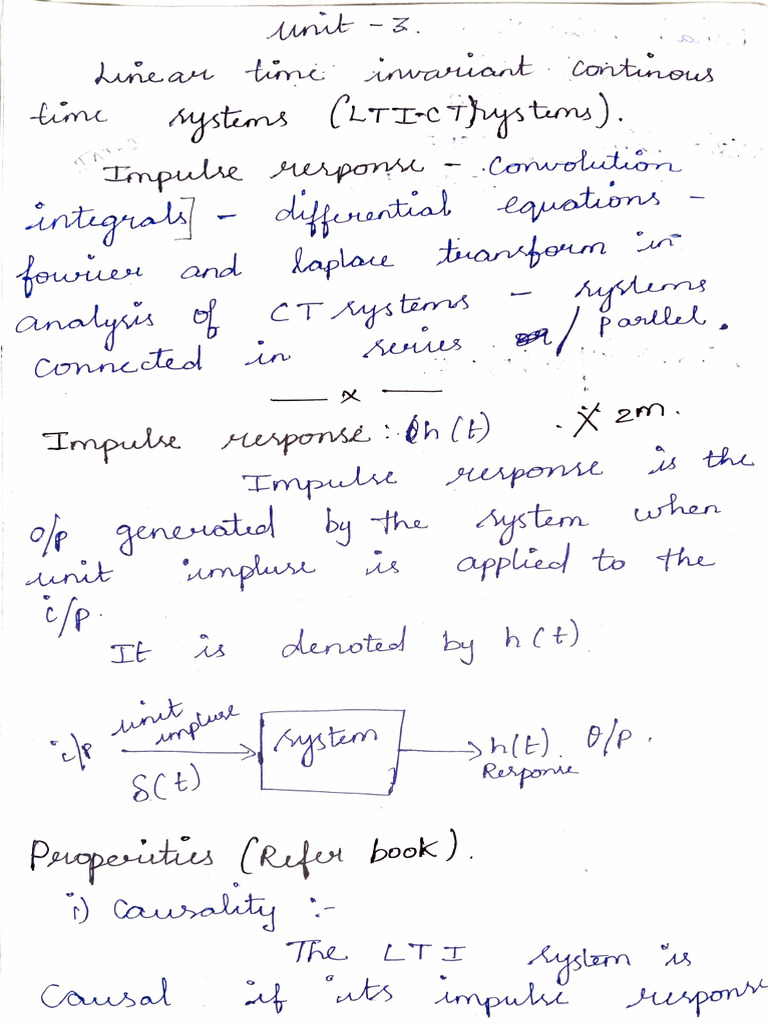 Unit - 3.
Linear time invariant continous
time systems (LTI-CT systems).
Impulse response - Convolution
integrals] - differential equations -
fourier and laplace transform in
analysis of CT systems - systems
connected in series / parllel.
— x —
Impulse response : h(t) . X 2m.
Impulse response is the
o/p generated by the system when
unit impluse is applied to the
i/p.
It is denoted by h(t)
i/p unit impluse δ(t) system h(t) Response O/P.
Properities (Refer book).
i) Causality :-
The LTI system is
Causal if its impulse response